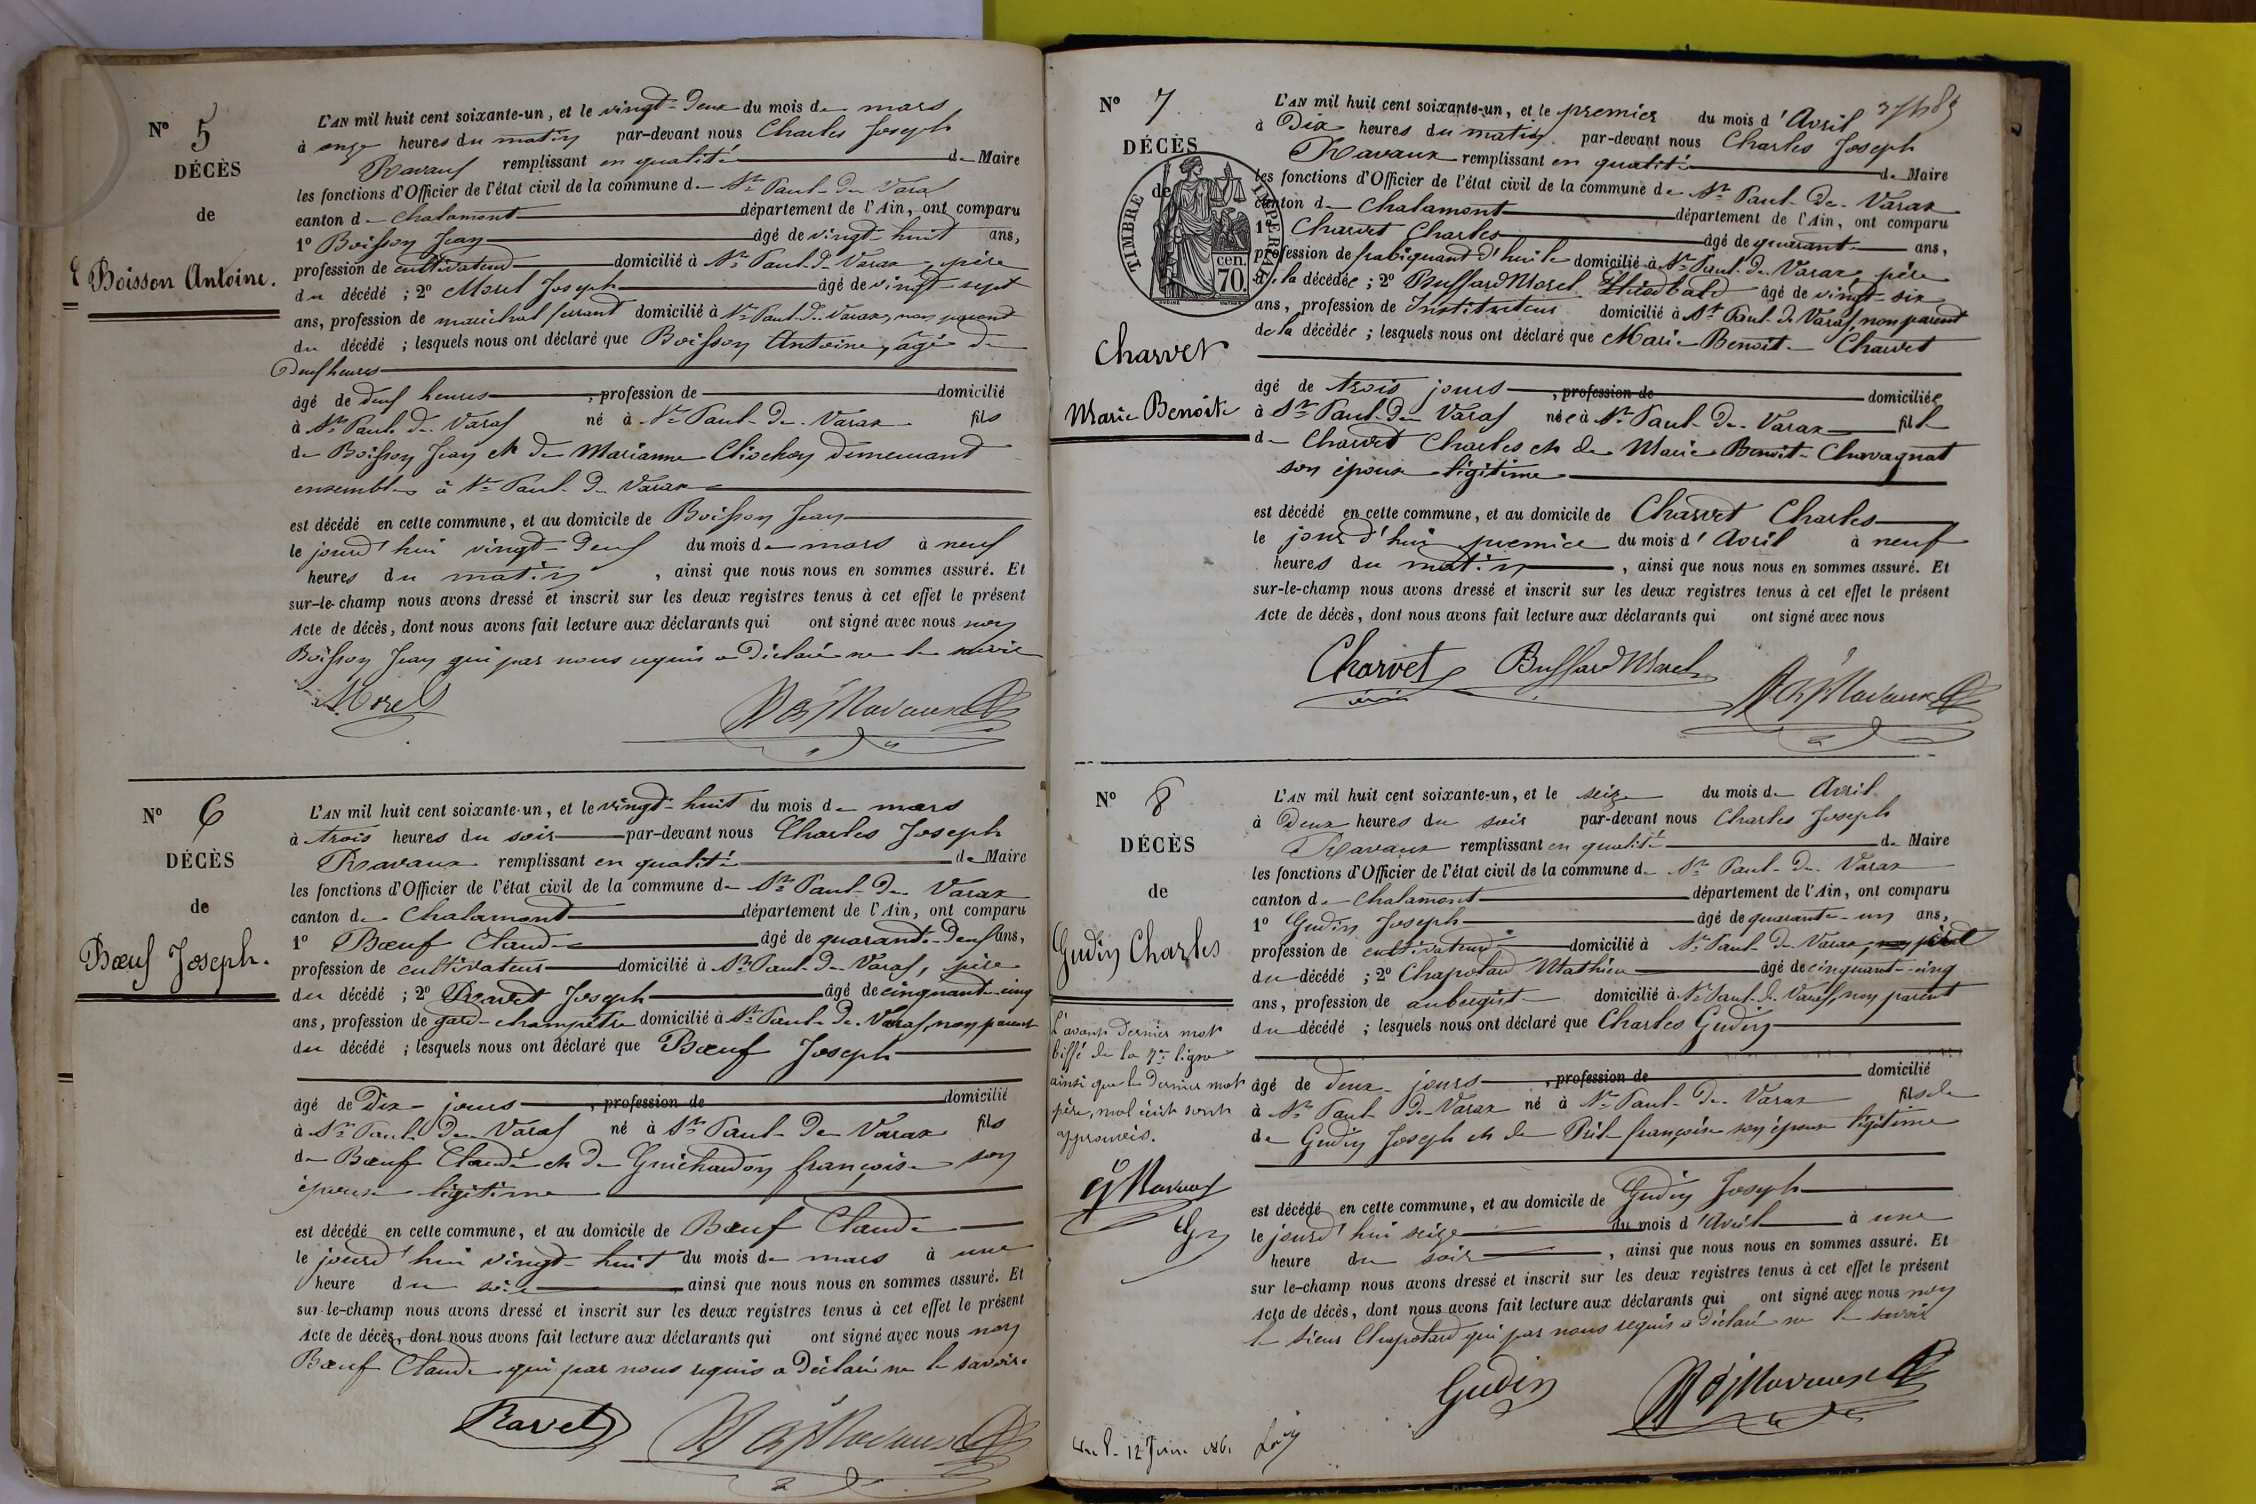 N° 5
DÉCÈS
de
Boisson Antoine.
L'AN mil huit cent soixante-un, et le vingt-deux du mois de mars
à onze heures du matin par-devant nous Charles Joseph
Ravaux remplissant en qualité de Maire
les fonctions d'Officier de l'état civil de la commune de St Paul-de Varax
canton de Chalamont département de l'Ain, ont comparu
1° Boisson Jean âgé de vingt-huit ans,
profession de cultivateur domicilié à St Paul-de Varax, père
du décédé ; 2° Morel Joseph âgé de vingt-sept
ans, profession de maréchal ferrant domicilié à St Paul-de-Varax, non parent
du décédé ; lesquels nous ont déclaré que Boisson Antoine, âgé de
deux heures
âgé de deux heures , profession de domicilié
à St Paul-de-Varax né à St Paul-de-Varax fils
de Boisson Jean et de Marianne demeurant
ensemble à St Paul-de Varax
est décédé en cette commune, et au domicile de Boisson Jean
le jourd'hui vingt-deux du mois de mars à neuf
heures du matin , ainsi que nous nous en sommes assuré. Et
sur-le-champ nous avons dressé et inscrit sur les deux registres tenus à cet effet le présent
Acte de décès, dont nous avons fait lecture aux déclarants qui ont signé avec nous non
Boisson Jean qui par nous requis a déclaré ne le savoir
Morel Ravaux
N° 6
DÉCÈS
de
Bœuf Joseph.
L'AN mil huit cent soixante-un, et le vingt-huit du mois de mars
à trois heures du soir par-devant nous Charles Joseph
Ravaux remplissant en qualité de Maire
les fonctions d'Officier de l'état civil de la commune de St Paul-de Varax
canton de Chalamont département de l'Ain, ont comparu
1° Bœuf Claude âgé de quarante-deux ans,
profession de cultivateur domicilié à St Paul-de Varax, père
du décédé ; 2° Ravet Joseph âgé de cinquante-cinq
ans, profession de garde-champêtre domicilié à St Paul-de-Varax, non parent
du décédé ; lesquels nous ont déclaré que Bœuf Joseph
âgé de dix jours , profession de domicilié
à St Paul-de-Varax né à St Paul-de Varax fils
de Bœuf Claude et de Guichardon françoise son
épouse légitime
est décédé en cette commune, et au domicile de Bœuf Claude
le jourd'hui vingt-huit du mois de mars à une
heure du soir ainsi que nous nous en sommes assuré. Et
sur-le-champ nous avons dressé et inscrit sur les deux registres tenus à cet effet le présent
Acte de décès, dont nous avons fait lecture aux déclarants qui ont signé avec nous non
Bœuf Claude qui par nous requis a déclaré ne le savoir.
Ravet Ravaux
N° 7
DÉCÈS
de
TIMBRE IMPERIAL
cen.
70.
Charvet
Marie Benoîte
L'AN mil huit cent soixante-un, et le premier du mois d'Avril
à Dix heures du matin par-devant nous Charles Joseph
Ravaux remplissant en qualité de Maire
les fonctions d'Officier de l'état civil de la commune de St Paul-de-Varax
canton de Chalamont département de l'Ain, ont comparu
1° Charvet Charles âgé de quarante ans,
profession de fabriquant d'huile domicilié à St Paul-de Varax, père
de la décédée ; 2° Buffard Morel Théodbald âgé de vingt-six
ans, profession de Instituteur domicilié à St Paul-de Varax, non parent
de la décédée ; lesquels nous ont déclaré que Marie Benoîte Charvet
âgé de trois jours , profession de domiciliée
à St Paul-de Varax née à St Paul-de-Varax fille
de Charvet Charles et de Marie Benoîte Chavagnat
son épouse légitime
est décédé en cette commune, et au domicile de Charvet Charles
le jourd'hui premier du mois d'Avril à neuf
heures du matin , ainsi que nous nous en sommes assuré. Et
sur-le-champ nous avons dressé et inscrit sur les deux registres tenus à cet effet le présent
Acte de décès, dont nous avons fait lecture aux déclarants qui ont signé avec nous
Charvet Buffard Morel Ravaux
N° 8
DÉCÈS
de
Gudin Charles
L'avant dernier mot
biffé de la 7me ligne
ainsi que le dernier mot
père, mal écrit sont
approuvés.
L'AN mil huit cent soixante-un, et le seize du mois de Avril
à Deux heures du soir par-devant nous Charles Joseph
Ravaux remplissant en qualité de Maire
les fonctions d'Officier de l'état civil de la commune de St Paul-de-Varax
canton de Chalamont département de l'Ain, ont comparu
1° Gudin Joseph âgé de quarante-un ans,
profession de cultivateur domicilié à St Paul-de-Varax, père
du décédé ; 2° Chapotard Mathieu âgé de cinquante-cinq
ans, profession de aubergiste domicilié à St Paul-de-Varax, non parent
du décédé ; lesquels nous ont déclaré que Charles Gudin
âgé de deux jours , profession de domicilié
à St Paul-de-Varax né à St Paul-de-Varax fils de
de Gudin Joseph et de françoise son épouse légitime
est décédé en cette commune, et au domicile de Gudin Joseph
le jourd'hui seize du mois d'Avril à une
heure du soir , ainsi que nous nous en sommes assuré. Et
sur le-champ nous avons dressé et inscrit sur les deux registres tenus à cet effet le présent
Acte de décès, dont nous avons fait lecture aux déclarants qui ont signé avec nous non
le sieur Chapotard qui par nous requis a déclaré ne le savoir
Gudin Ravaux
12 Juin 1861